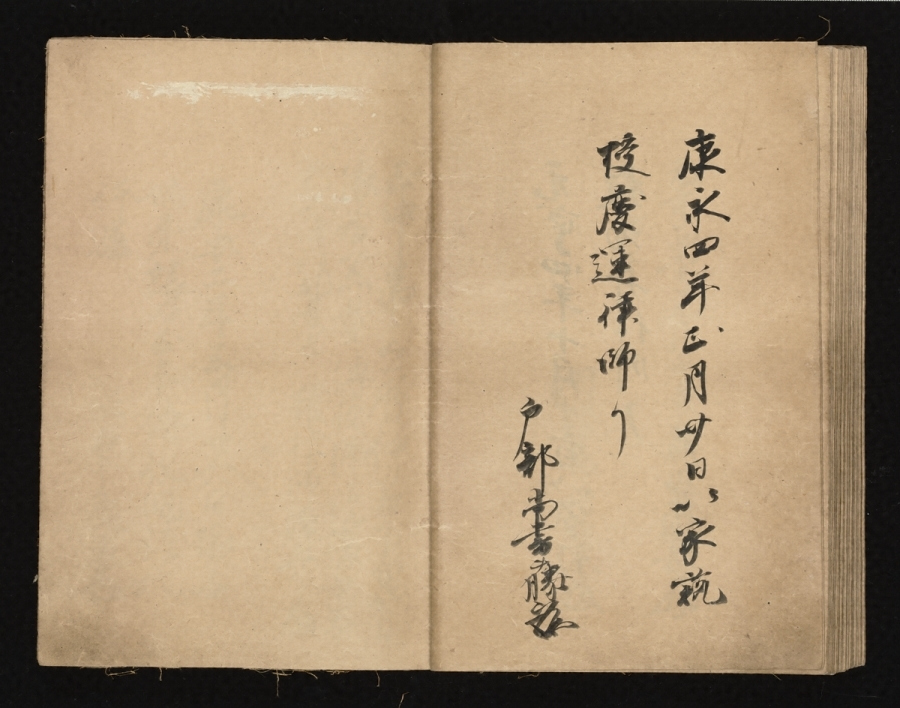 康永四年正月廿日以家説
授慶運律師了
戸部尚書藤